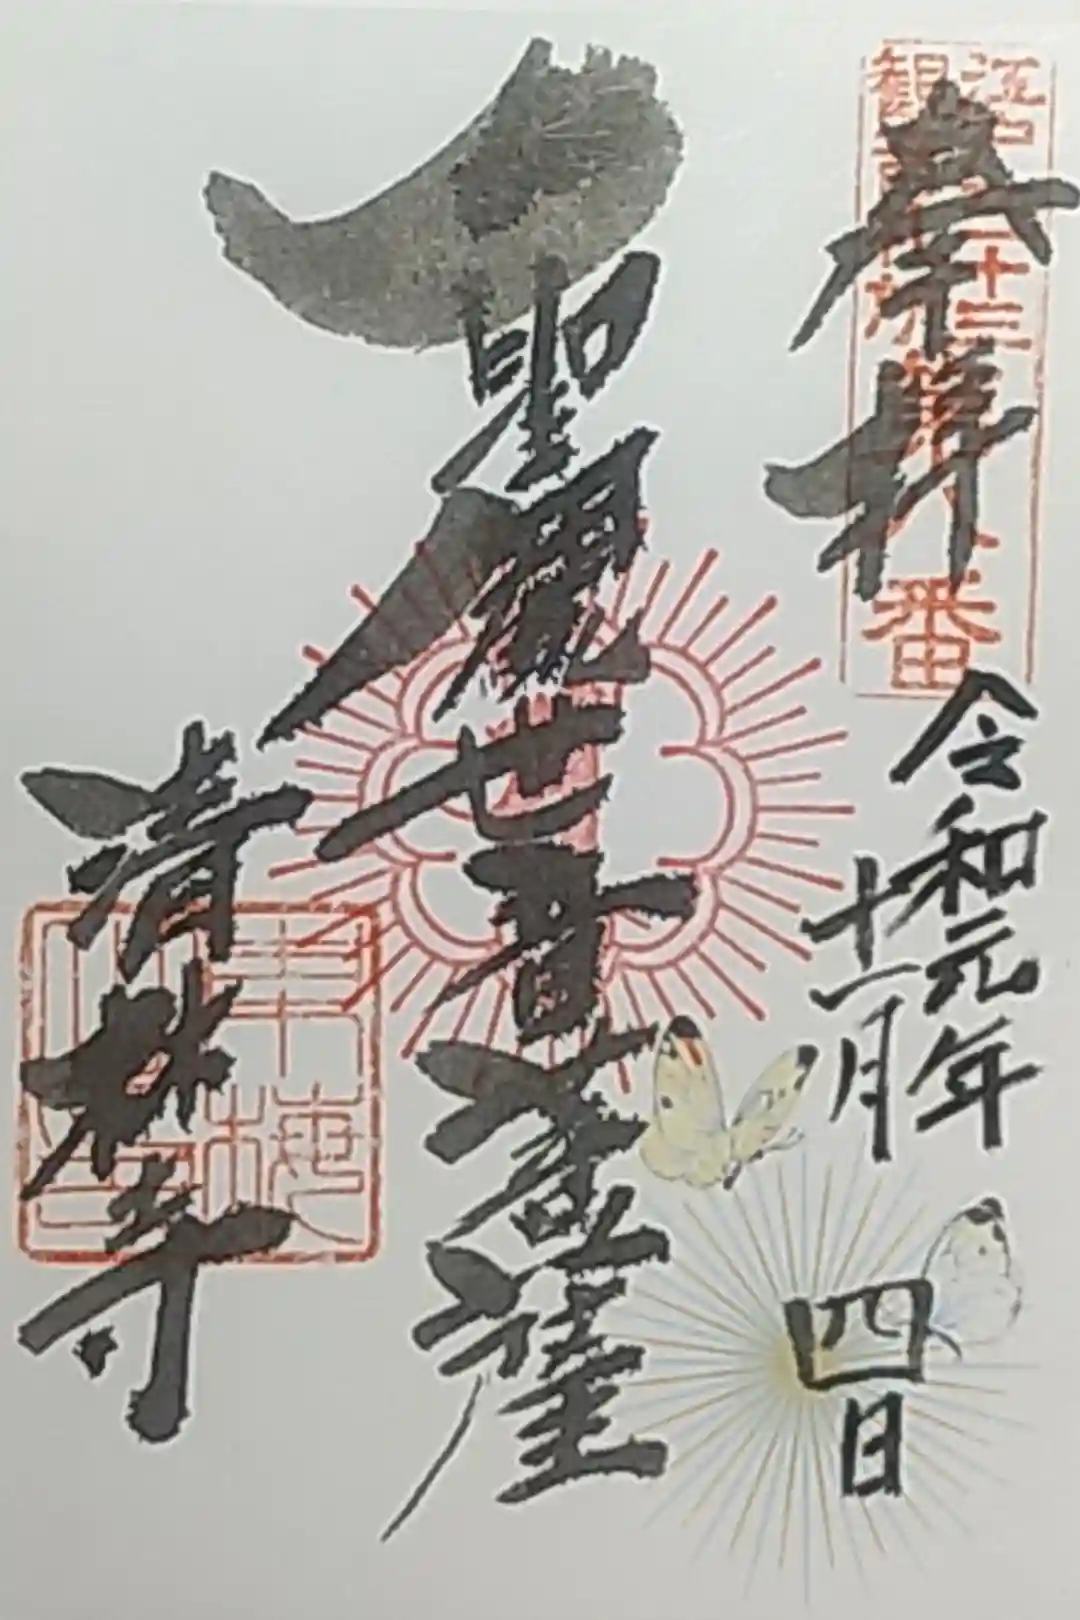 江戸三十三
観音札所第八番
奉拝
令和元年
十一月
四日
聖観世音菩薩
清林寺